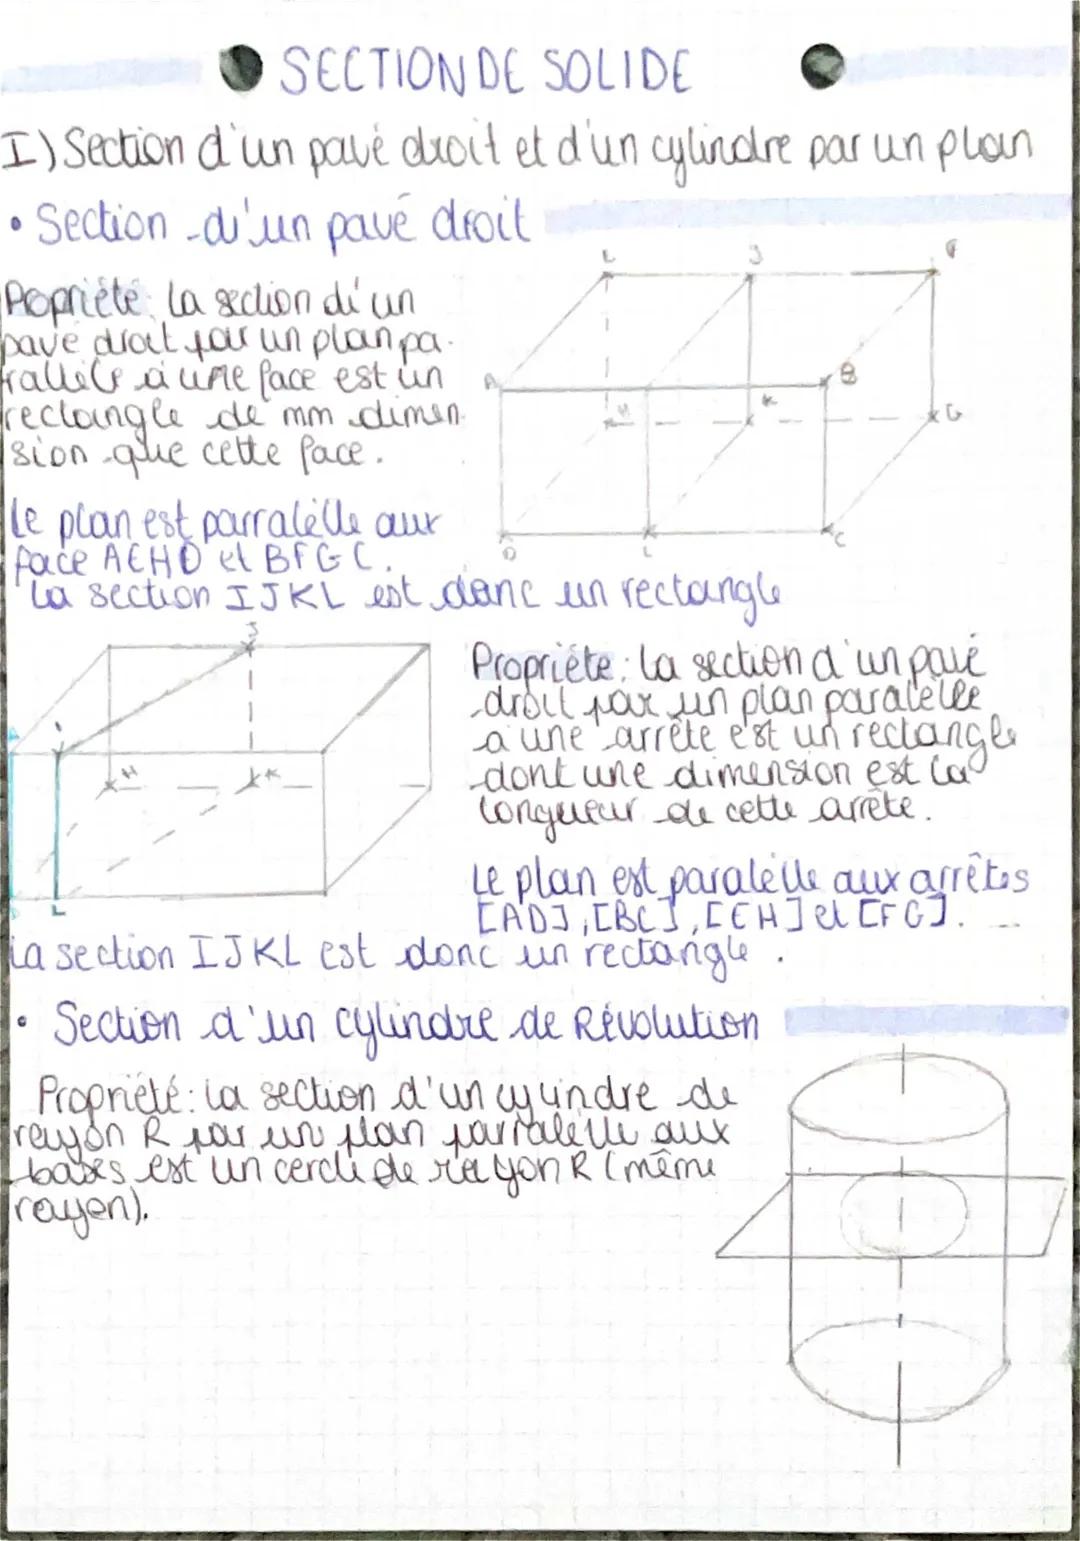 SECTION DE SOLIDE
I) Section d'un pavé droit et d'un cylindre par un plan
• Section d'un pavé droit
Propriété: la section d'un
pavé droit par un plan pa-
rallèle à une face est un
rectangle de mm dimen-
sion que cette face.
Le plan est parralèlle aux
face AEHD et BFGC.
La section IJKL est donc un rectangle
J
F
A
B
H
K
G
D
L
C
J
Propriéte: la section d'un pavé
droit par un plan paralèlle
a une arrête est un rectangle
dont une dimension est la
longueur de cette arrête.
H
K
L
Le plan est paralèlle aux arrêtes
[AD], [BC], [EH] et [FG].
La section IJKL est donc un rectangle.
• Section d'un cylindre de Révolution
Propriété: la section d'un cylindre de
rayon R par un plan parralèlle aux
bases est un cercle de rayon R (même
rayon).